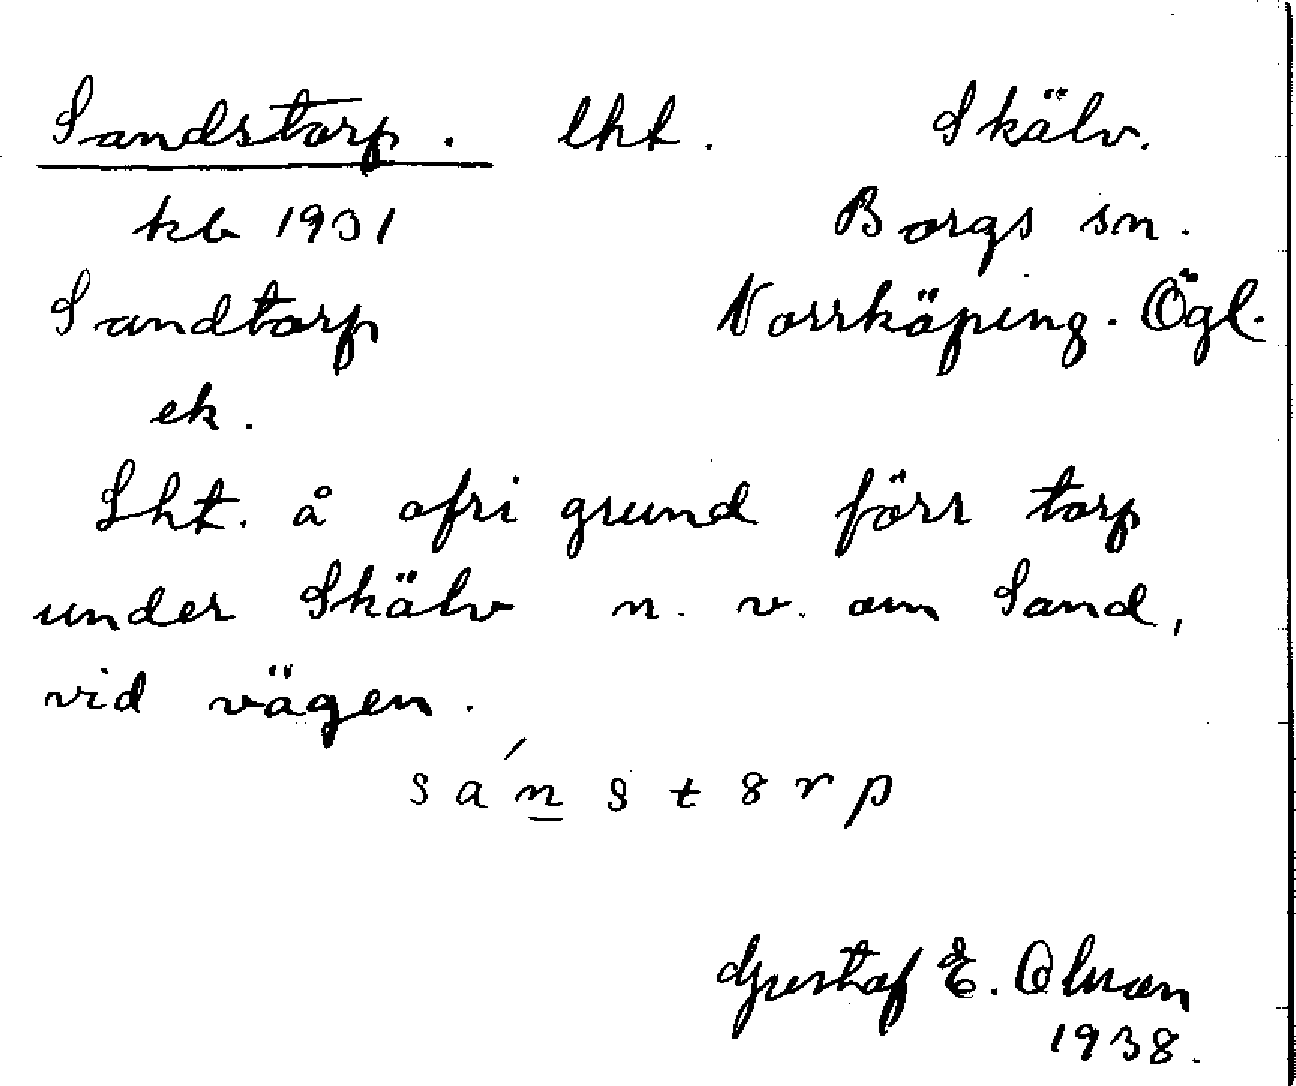 Sandstorp. lht. Skälv.
kb 1931 Borgs sn.
Sandtorp Norrköping. Ögl.
ek.
Lht. å ofri grund förr torp
under Skälv n. v. om Sand,
vid vägen.
sánstɵrp
Gustaf E. Olsson
1938.